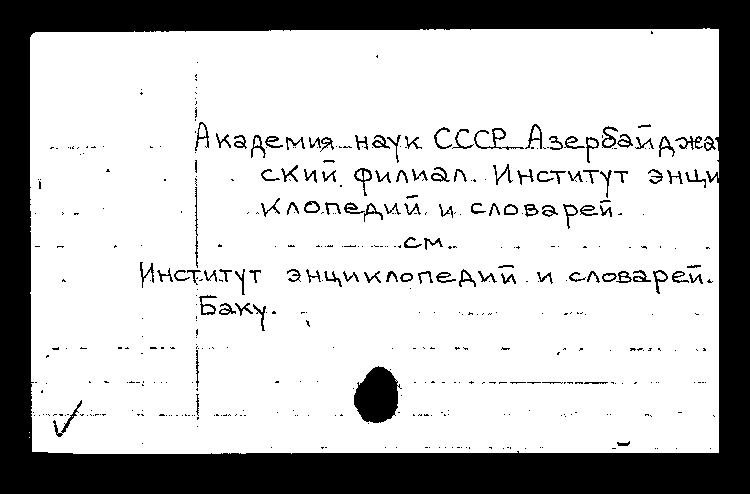 Академия наук СССР Азербайджа
ский филиал. Институт энци
клопедий и словарей.
см.
Институт энциклопедий и словарей.
Баку.